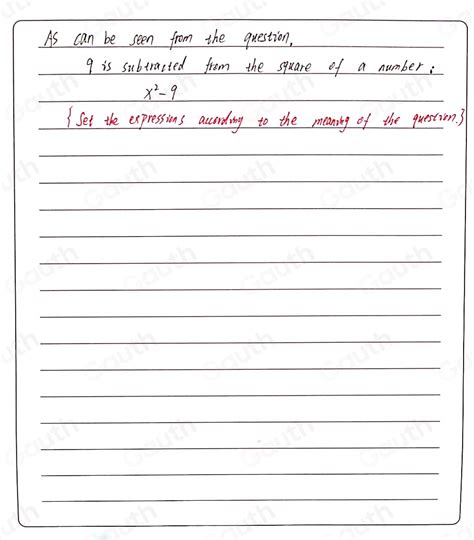 As can be seen from the question,
9 is subtracted from the square of a number:
x²-9
{Set the expressions according to the meaning of the question.}
Gauth